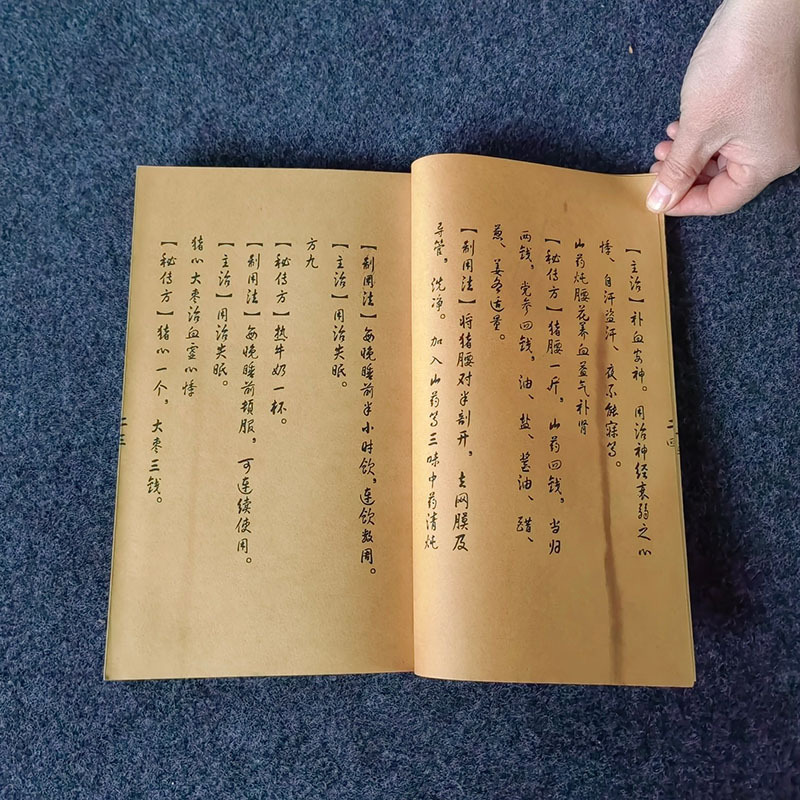 【制用法】每晚睡前半小时饮，连饮数周。
【主治】用治失眠。
方九
【秘传方】热牛奶一杯。
【制用法】每晚睡前顿服，可连续使用。
【主治】用治失眠。
猪心大枣治血虚心悸
【秘传方】猪心一个，大枣三钱。
二三
【主治】补血安神。用治神经衰弱之心
悸、自汗盗汗、夜不能寐等。
山药炖腰花养血益气补肾
【秘传方】猪腰一斤，山药四钱，当归
两钱，党参四钱，油、盐、酱油、醋、
葱、姜各适量。
【制用法】将猪腰对半剖开，去网膜及
导管，洗净。加入山药等三味中药清炖
二四